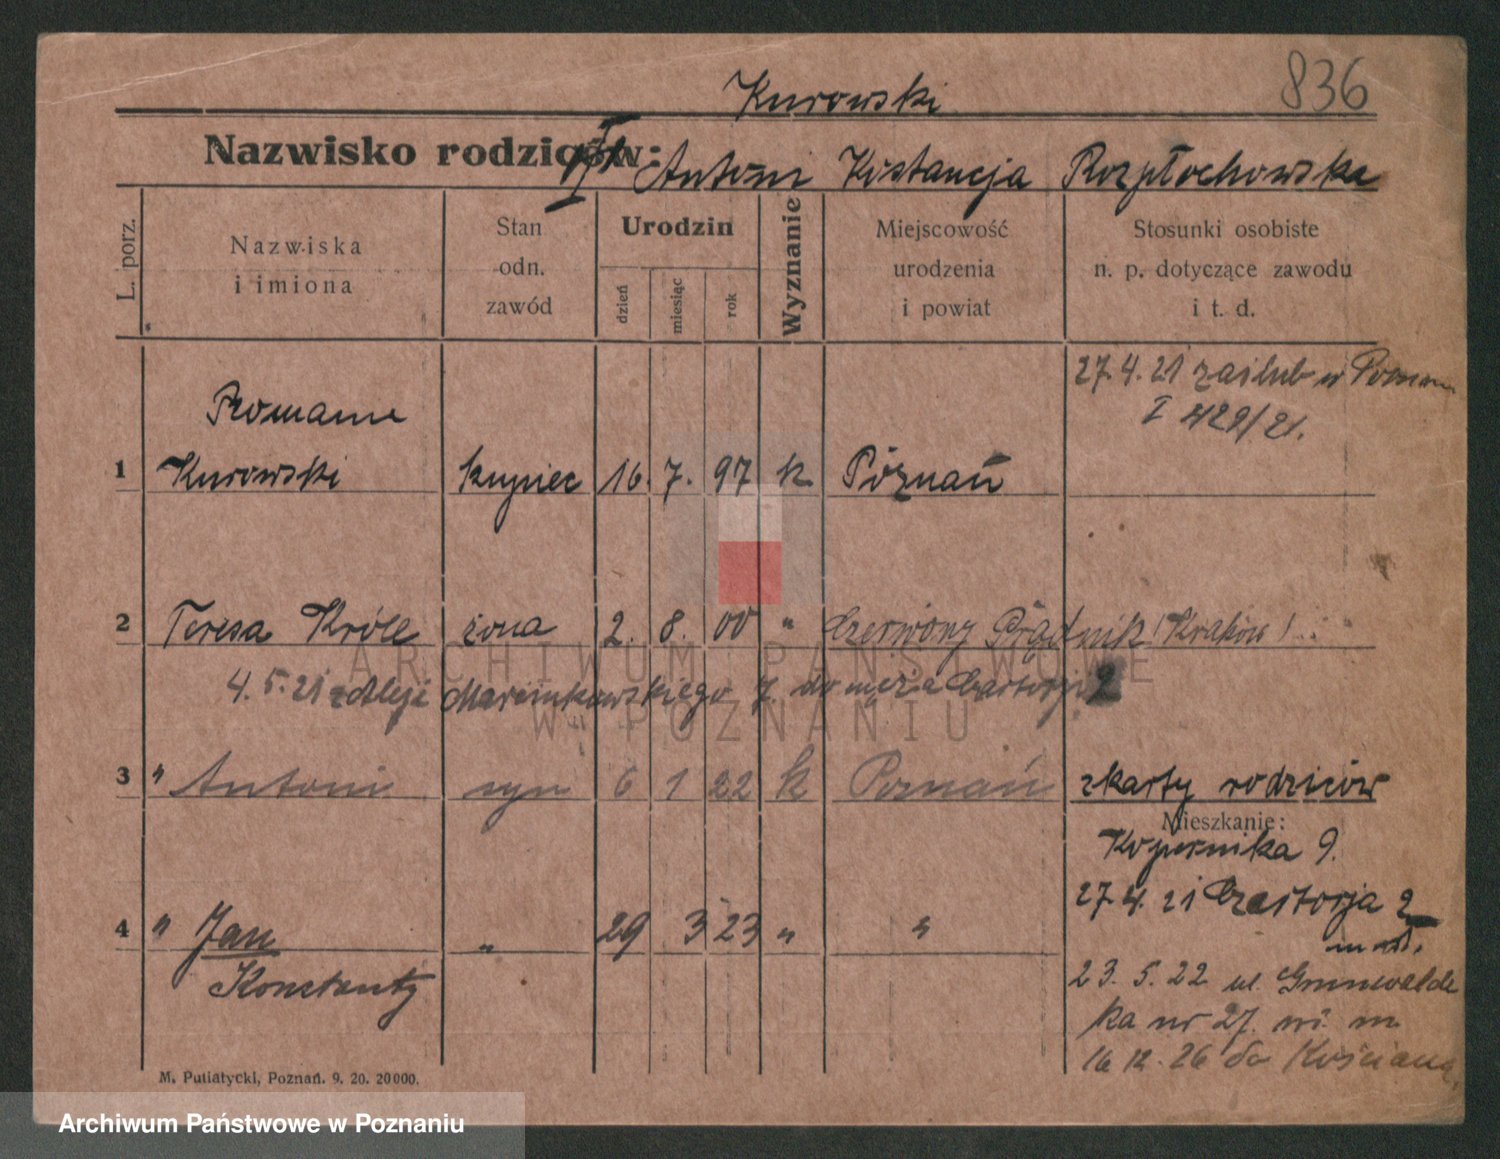 836
Kurowski
Nazwisko rodziców: Antoni Kostancja Rozpłochowska
L. porz.
Nazwiska i imiona
Stan odn. zawód
Urodzin
dzień
miesiąc
rok
Wyznanie
Miejscowość urodzenia i powiat
Stosunki osobiste n. p. dotyczące zawodu i t. d.
27.4.21 zaślub w Poznaniu
I 429/21.
Roman
1 Kurowski kupiec 16. 7. 97 k Poznań
2 Teresa Króll żona 2. 8. 00 " Czerwony Prądnik (Kraków)
4.5.21 z Aleji Marcinkowskiego 7 do męża Czartorja 2
3 " Antoni syn 6 1 22 k Poznań z karty rodziców
Mieszkanie:
Kopernika 9.
27.4.21 Czartorja 2
4 " Jan " 29 3 23 " "
Konstanty
23.5.22 ul. Grunwaldz
ka nr 27. m.
16 12. 26 do Kościana,
M. Putiatycki, Poznań. 9. 20. 20000.
ARCHIWUM PAŃSTWOWE
W POZNANIU
Archiwum Państwowe w Poznaniu